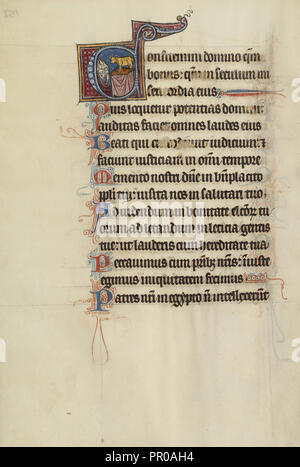 Confitemini domino qm̄
bonus: qm̄ in seculum mi
sericordia eius
Quis loquetur potentias domini:
auditas faciet omnes laudes eius
Beati qui custodiunt iudicium: et
faciunt iusticiam in om̄i tempore
Memento nostri dn̄e in bn̄placito
ppłi tui: uisita nos in salutari tuo
Ad uidendum in bonitate electoꝝ tu
orum ad letandum in leticia gentis
tue: ut lauderis cum hereditate tua
Peccauimus cum pr̄ibꝫ nr̄is: iniuste
egimus iniquitatem fecimus
Patres nr̄i in egypto nō intellexerūt
PR0AH4